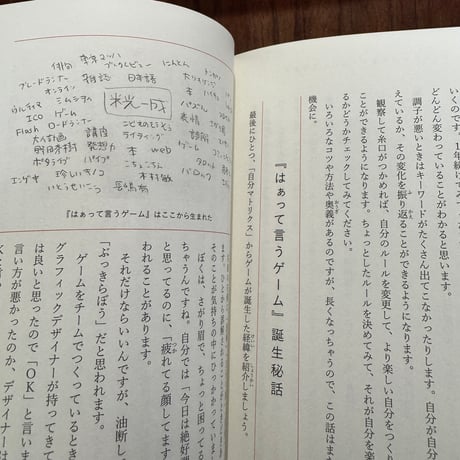 いのです。1年続けてみ
どんどん変わっていることがわかると思います。
調子が悪いときはキーワードがたくさん出てこなかったりします。自分が自分
えているか、その変化を振り返ることができるようになります。
観察して糸口がつかめれば、自分のルールを変更して、より楽しい自分をつくり
ことができるようになります。ちょっとしたルールを決めてみて、それが自分を楽
るかどうかチェックしてみてください。
いろいろなコツや方法や奥義があるのですが、長くなっちゃうので、この話はまた
機会に。
『はぁって言うゲーム』誕生秘話
最後にひとつ、「自分マトリクス」からゲームが誕生した経緯を紹介しましょう。
俳句
ブックレビュー
にんとん
ブレードランナー
雑誌
日本語
オンライン
ウルティマ
シムシティ
ICO
ゲーム
米光一成
パズル
Flash
ロードランナー
表情
講座
こどものもうそう
診断
野田秀樹
発想力
ライティング
ゲーム
ポタライブ
パイプ
本
web
タロット
エッゲキ
珍しいキノコ
こちょこちょ
バロック
いとうせいこう
木村敏
長嶋有
『はぁって言うゲーム』はここから生まれた
そのことが気持ちの中にひっかかっていま
ぼくは、さがり眉で、ちょっと困ってる
ちゃうんですね。自分では「今日は絶好調
と思ってるのに、「疲れてる顔してます
われることがあります。
それだけならいいんですが、油断し
「ぶっきらぼう」だと思われます。
ゲームをチームでつくっているとき
グラフィックデザイナーが持ってきて
は良いと思ったので「OK」と言いま
言い方が悪かったのか、デザイナーは